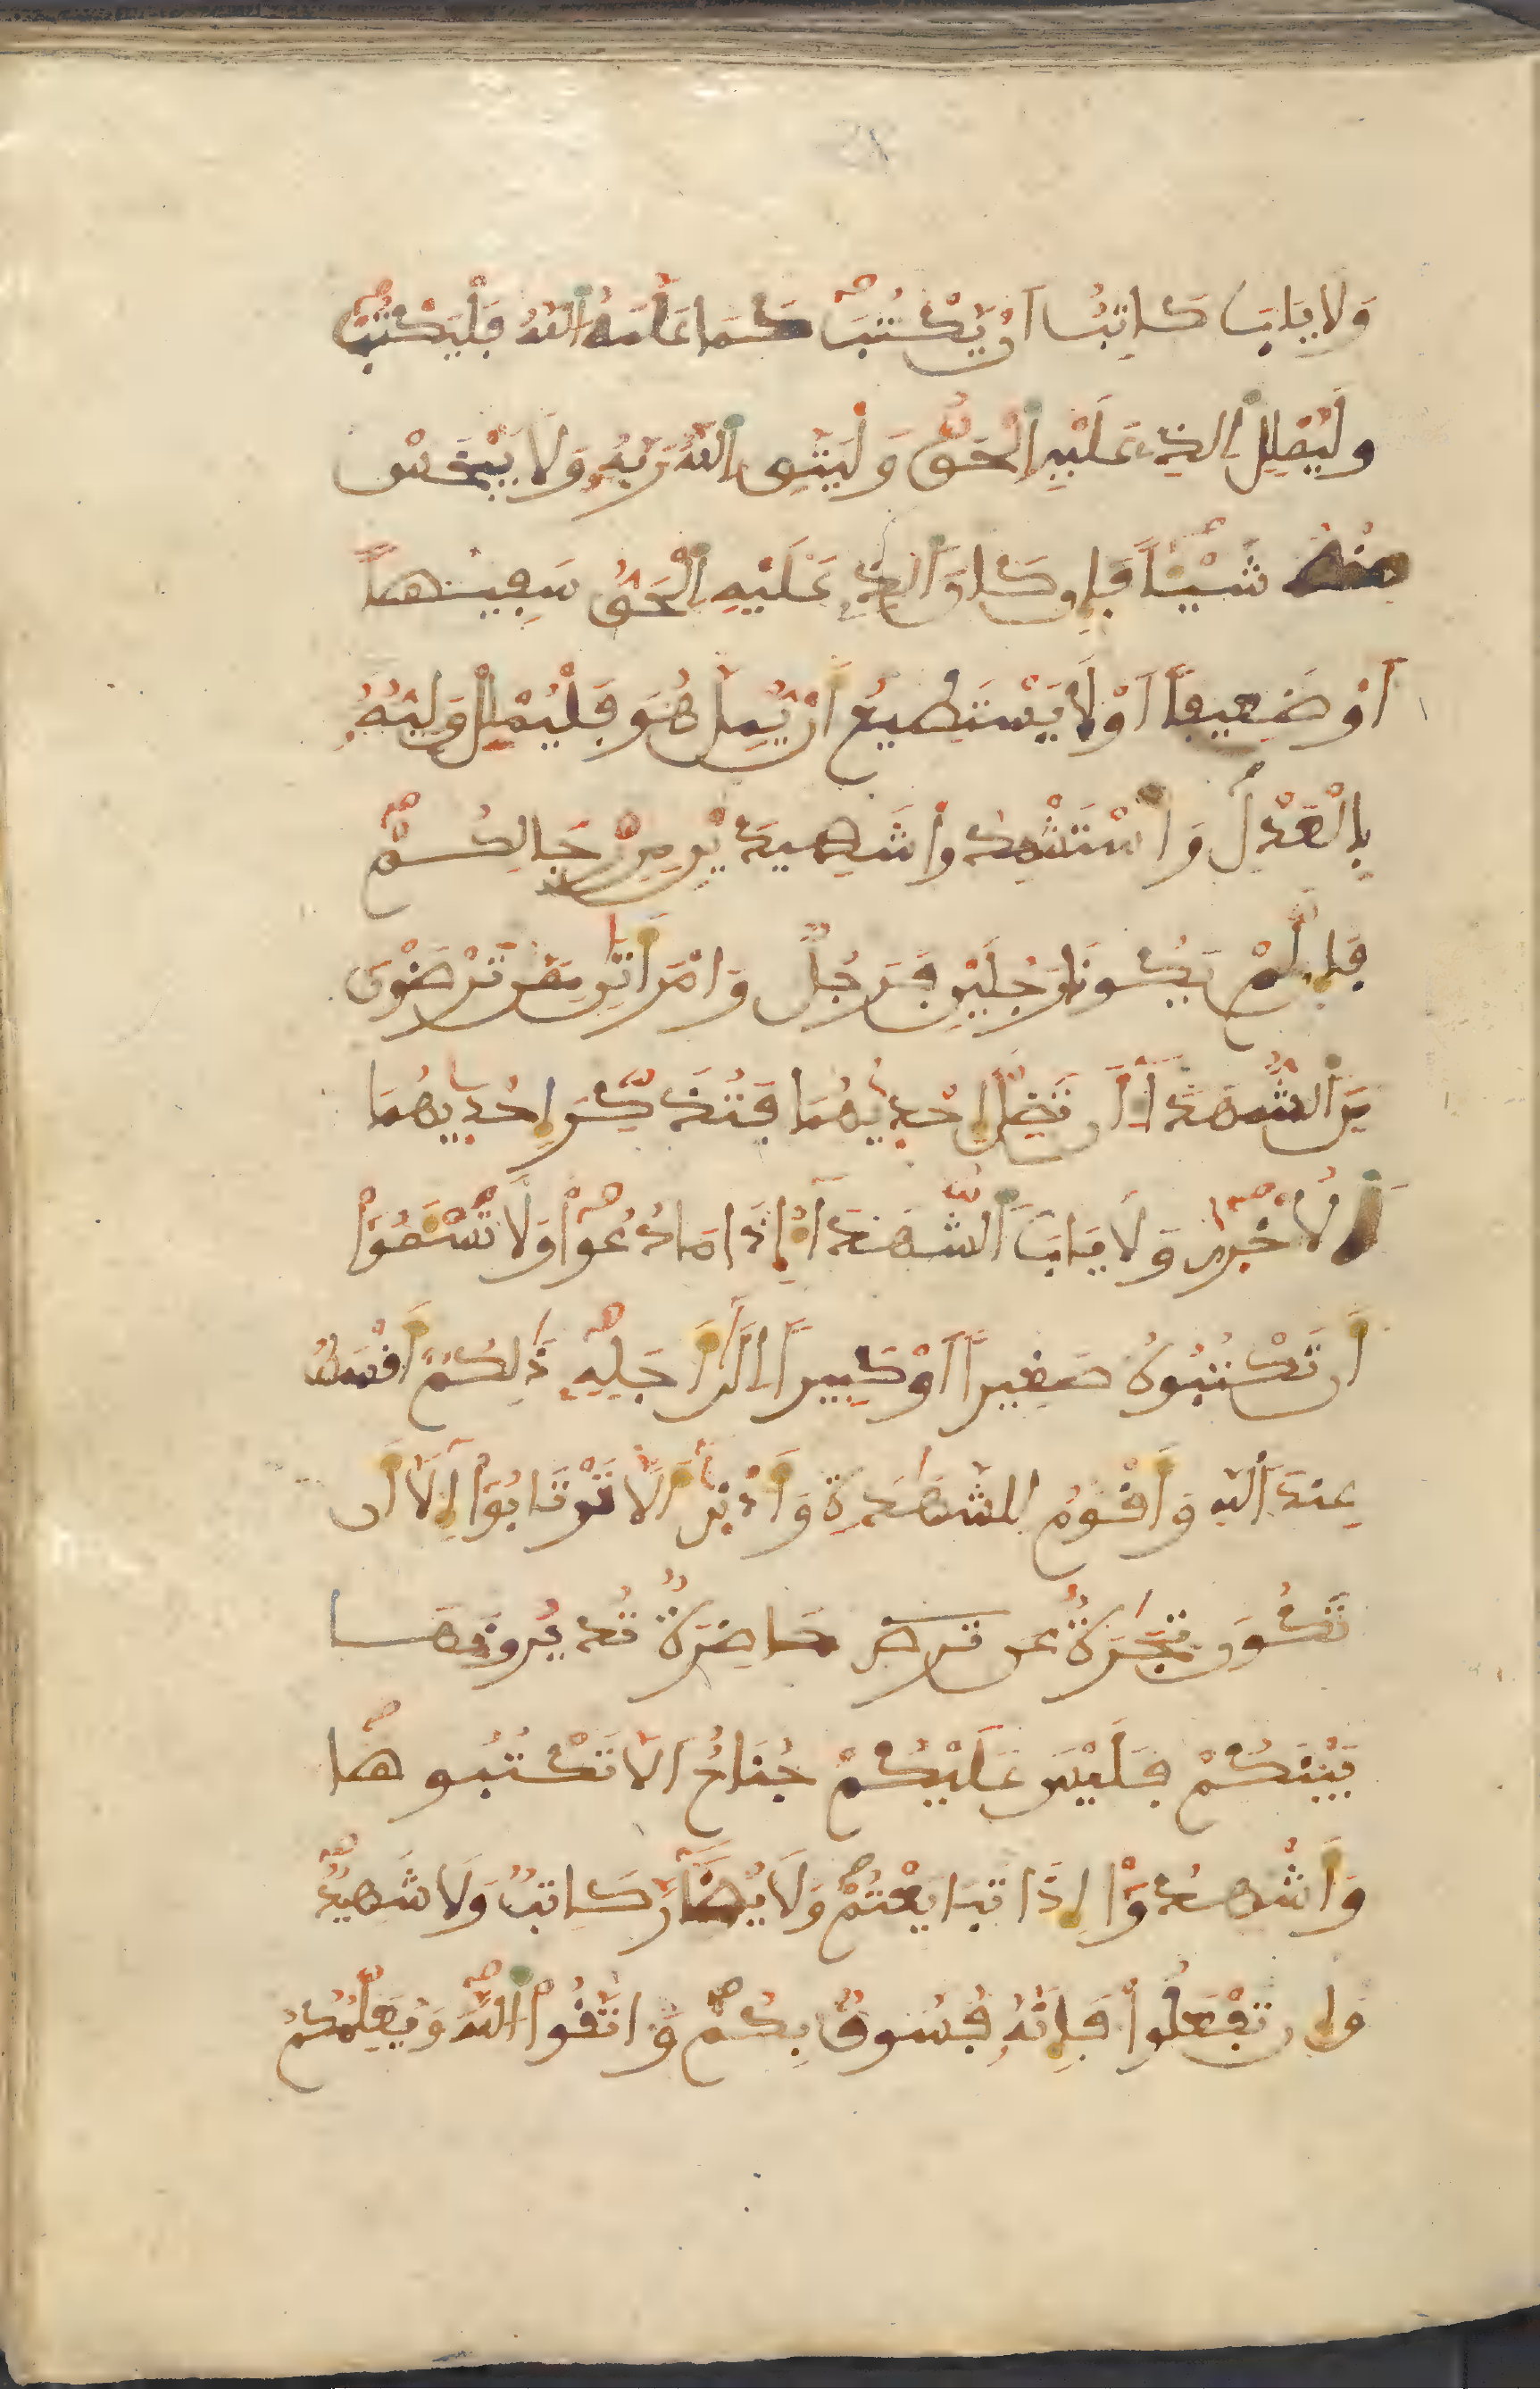 وَلَا يَابَ كَاتِبٌ اَنْ يَّكْتُبَ كَمَا عَلَّمَهُ اُللَّهُ فَلْيَكْتُبْ
وَلْيُمْلِلِ اِلذِے عَلَيْهِ اِلْحَقُّ وَلْيَتَّقِ اِللَّهَ رَبَّهُ وَلَا يَبْخَسْ
مِنْهُ شَيْـًٔا فَإِن كَانَ اَلذِے عَلَيْهِ اِلْحَقُّ سَفِيهاً
اَوْ ضَعِيفاً اَوْ لَا يَسْتَطِيعُ أَنْ يُّمِلَّ هُوَ فَلْيُمْلِلْ وَلِيُّهُ
بِالْعَدْلِ وَاسْتَشْهِدُوا شَهِيدَيْنِ مِن رِّجَالِكُمْ
فَإِن لَّمْ يَكُونَا رَجُلَيْنِ فَرَجُلٌ وَامْرَأَتَٰنِ مِمَّن تَرْضَوْنَ
مِنَ اَلشُّهَدَآءِ اَن تَضِلَّ إِحْدَيٰهُمَا فَتُذَكِّرَ إِحْدَيٰهُمَا
اَلُاخْر۪يٰ وَلَا يَابَ اَلشُّهَدَآءُ إِذَا مَا دُعُواْ وَلَا تَسْـَٔمُواْ
أَن تَكْتُبُوهُ صَغِيراً اَوْ كَبِيراً اِلَيٰٓ أَجَلِهِۦ ذَٰلِكُمُۥٓ أَقْسَطُ
عِندَ اَللَّهِ وَأَقْوَمُ لِلشَّهَٰدَةِ وَأَدْنَيٰٓ أَلَّا تَرْتَابُوٓاْ إِلَّآ أَن
تَكُونَ تِجَٰرَةٌ عَن تَرَاضٍ حَاضِرَةٌ تُدِيرُونَهَا
بَيْنَكُمْ فَلَيْسَ عَلَيْكُمْ جُنَاحٌ اَلَّا تَكْتُبُوهَا
وَأَشْهِدُوٓاْ إِذَا تَبَايَعْتُمْ وَلَا يُضَآرَّ كَاتِبٌ وَلَا شَهِيدٌ
وَإِن تَفْعَلُواْ فَإِنَّهُۥ فُسُوقٌ بِكُمْ وَاتَّقُواْ اُللَّهَ وَيُعَلِّمُكُمُ